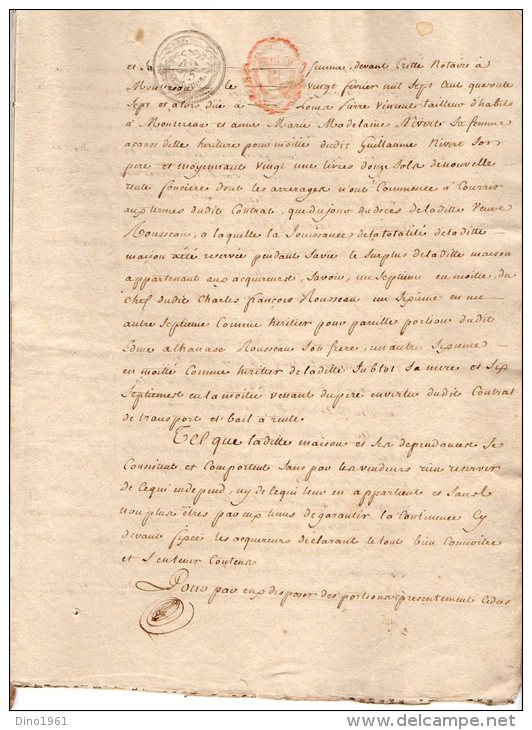 et sa femme, devant Crette Notaire à
Montereau le vingt fevrier mil Sept Cent quarante
Sept et alors due à Louis Pierre Vincent tailleur d'habits
à Montereau et anne Marie Madelaine Nivert Sa femme
acause delle heritiere pour moitié dudit Guillaume Nivert Son
pere et moyennant vingt une livres douze Sols de nouvelle
rente fonciere dont les arrerages n'ont Commencé à Courrir
aux termes dudit Contrat, que du jour du decès de laditte Veuve
Rousseau, a laquelle la Jouissance de la totalité de laditte
maison a été reservée pendant Sa vie le Surplus de laditte maison
appartenant aux acquereurs, Savoir, un Septieme en moitié, du
Chef dudit Charles françois Rousseau un Sixieme en un
autre Septieme Comme heritier pour pareille portion dudit
Edme athanase Rousseau Son frere, un autre Sixieme
en moitié Comme heritier de laditte Jublot Sa mere et Six
Septiemes en la moitié venant du pere en vertu dudit Contrat
de transport et bail à rente.
Tel que laditte maison et Ses dependances Se
Consistent et Comportent Sans par les vendeurs rien reserver
de Ce qui en depend, ny de Ce qui leur en appartient et Sans
non plus êtres par eux tenus de garantir la Continence Cy
devant fixée les acquereurs declarant le tout bien Connoitre
et S'en tenir Contens
Pour par eux disposer des portions presentement Cedées
Dino1961
www.delcampe.net